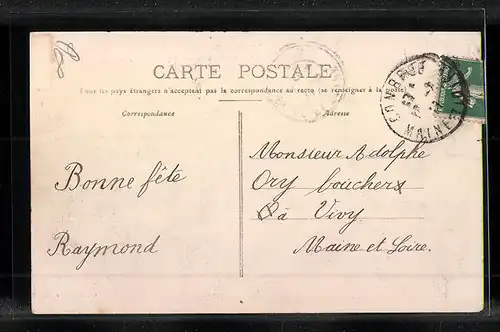 CARTE POSTALE
Tous les pays étrangers n'acceptent pas la correspondance au recto (se renseigner à la poste)
Correspondance
Adresse
Bonne fête
Raymond
Monsieur Adolphe
Ory boucher
à Vivy
Maine et Loire.
MAINE